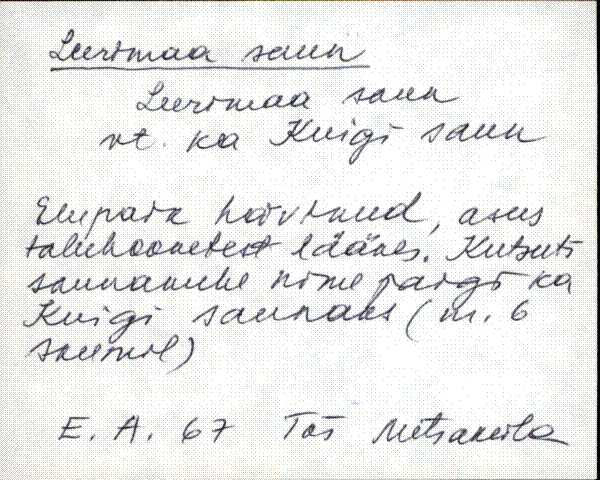 Leerimaa saun
Leerimaa saun
vt. ka Kuigi saun
Elupaik hävinud, asus
taluhoonetest läänes. Kutsuti
saunamehe nime järgi ka
Kuigi saunaks ( nr. 6
saunal)
E. A. 67 Tõs Metsaküla